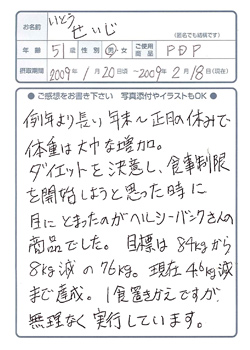 お名前
いとう せいじ
(匿名でも結構です)
年齢 51才 性別 男・女 ご使用商品 PDP
摂取期間 2009年 1月 20日頃 ~2009年 2月 18日(現在)
●ご感想をお書き下さい 写真添付やイラストもOK●
例年より長い年末〜正月の休みで
体重は大巾な増加。
ダイエットを決意し、食事制限
を開始しようと思った時に
目にとまったのがヘルシーバンクさんの
商品でした。目標は84kgから
8kg減の76kg。現在4.6kg減
まで達成。1食置きかえですが
無理なく実行しています。